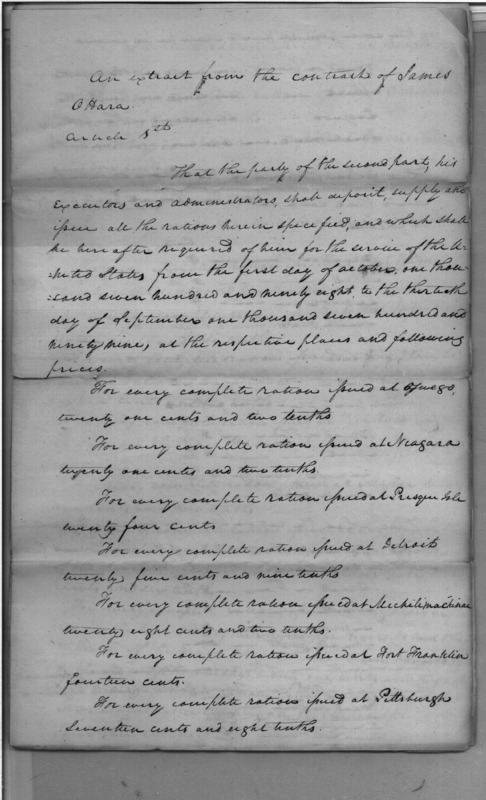 An extract from the contract of James
OHara.
Article 1st
That the party of the second part, his
Executors and administrators, shall deposit, supply and
issue all the rations herein specified, and which shall
be here after required of him for the service of the U-
:nited States from the first day of october, one thou-
:sand seven hundred and ninety eight to the thirtieth
day of September one thousand seven hundred and
ninety nine, at the respective places and following
prices.
For every complete ration issued at Oswego,
twenty one cents and two tenths
For every complete ration issued at Niagara
twenty one cents and two tenths.
For every complete ration issued at Presque Isle
twenty four cents
For every complete ration issued at Detroit
twenty five cents and nine tenths
For every complete ration issued at Michilimackinac
twenty eight cents and two tenths.
For every complete ration issued at Fort Franklin
fourteen cents.
For every complete ration issued at Pittsburgh
Seventeen cents and eight tenths.